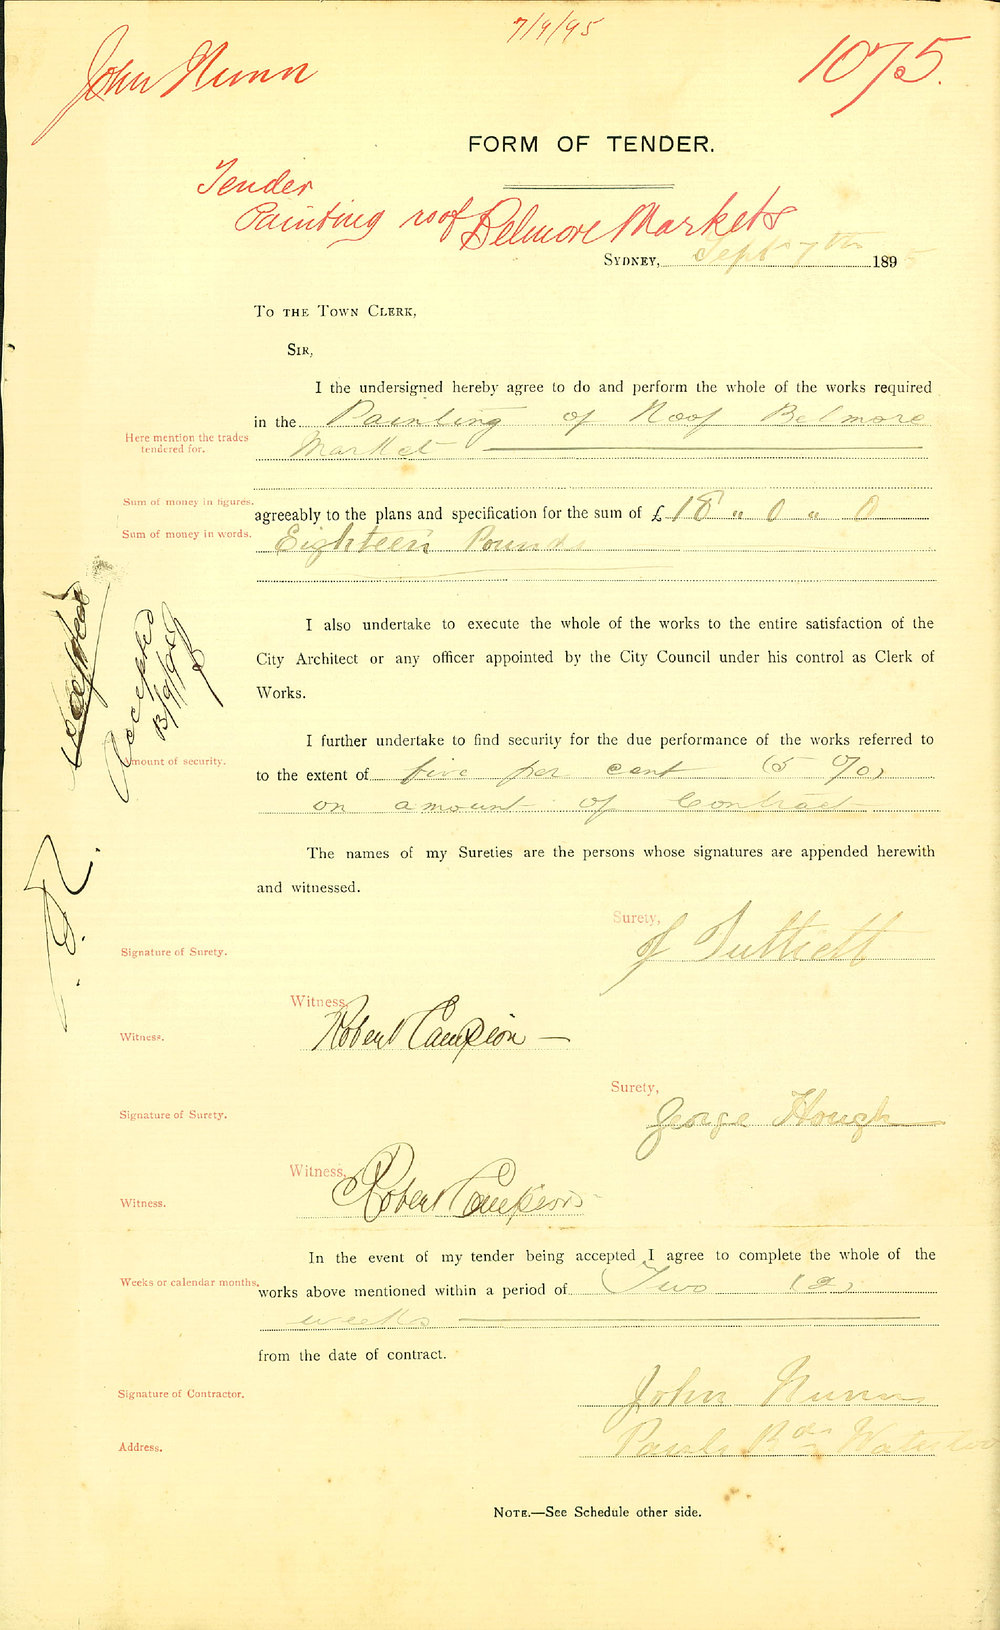 7/9/95
John Nunn
1075.
FORM OF TENDER.
Tender
Painting roof Belmore Markets
SYDNEY, Sept 7th 1895
TO THE TOWN CLERK,
SIR,
I the undersigned hereby agree to do and perform the whole of the works required
in the Painting of Roof Belmore
Here mention the trades
tendered for.
Market
Sum of money in figures.
agreeably to the plans and specification for the sum of £ 18 " 0 " 0
Sum of money in words.
Eighteen Pounds
I also undertake to execute the whole of the works to the entire satisfaction of the
City Architect or any officer appointed by the City Council under his control as Clerk of
Works.
Accepted
13/9/95
I further undertake to find security for the due performance of the works referred to
Amount of security.
to the extent of five per cent (5 %)
on amount of Contract
The names of my Sureties are the persons whose signatures are appended herewith
and witnessed.
Surety,
Signature of Surety.
J Tuttiett
Witness,
Witness.
Robert Campion
Surety,
Signature of Surety.
George Hough
Witness,
Witness.
Robert Campion
In the event of my tender being accepted I agree to complete the whole of the
Weeks or calendar months,
works above mentioned within a period of Two (2)
weeks
from the date of contract.
Signature of Contractor.
John Nunn
Address.
Waterloo
NOTE.—See Schedule other side.